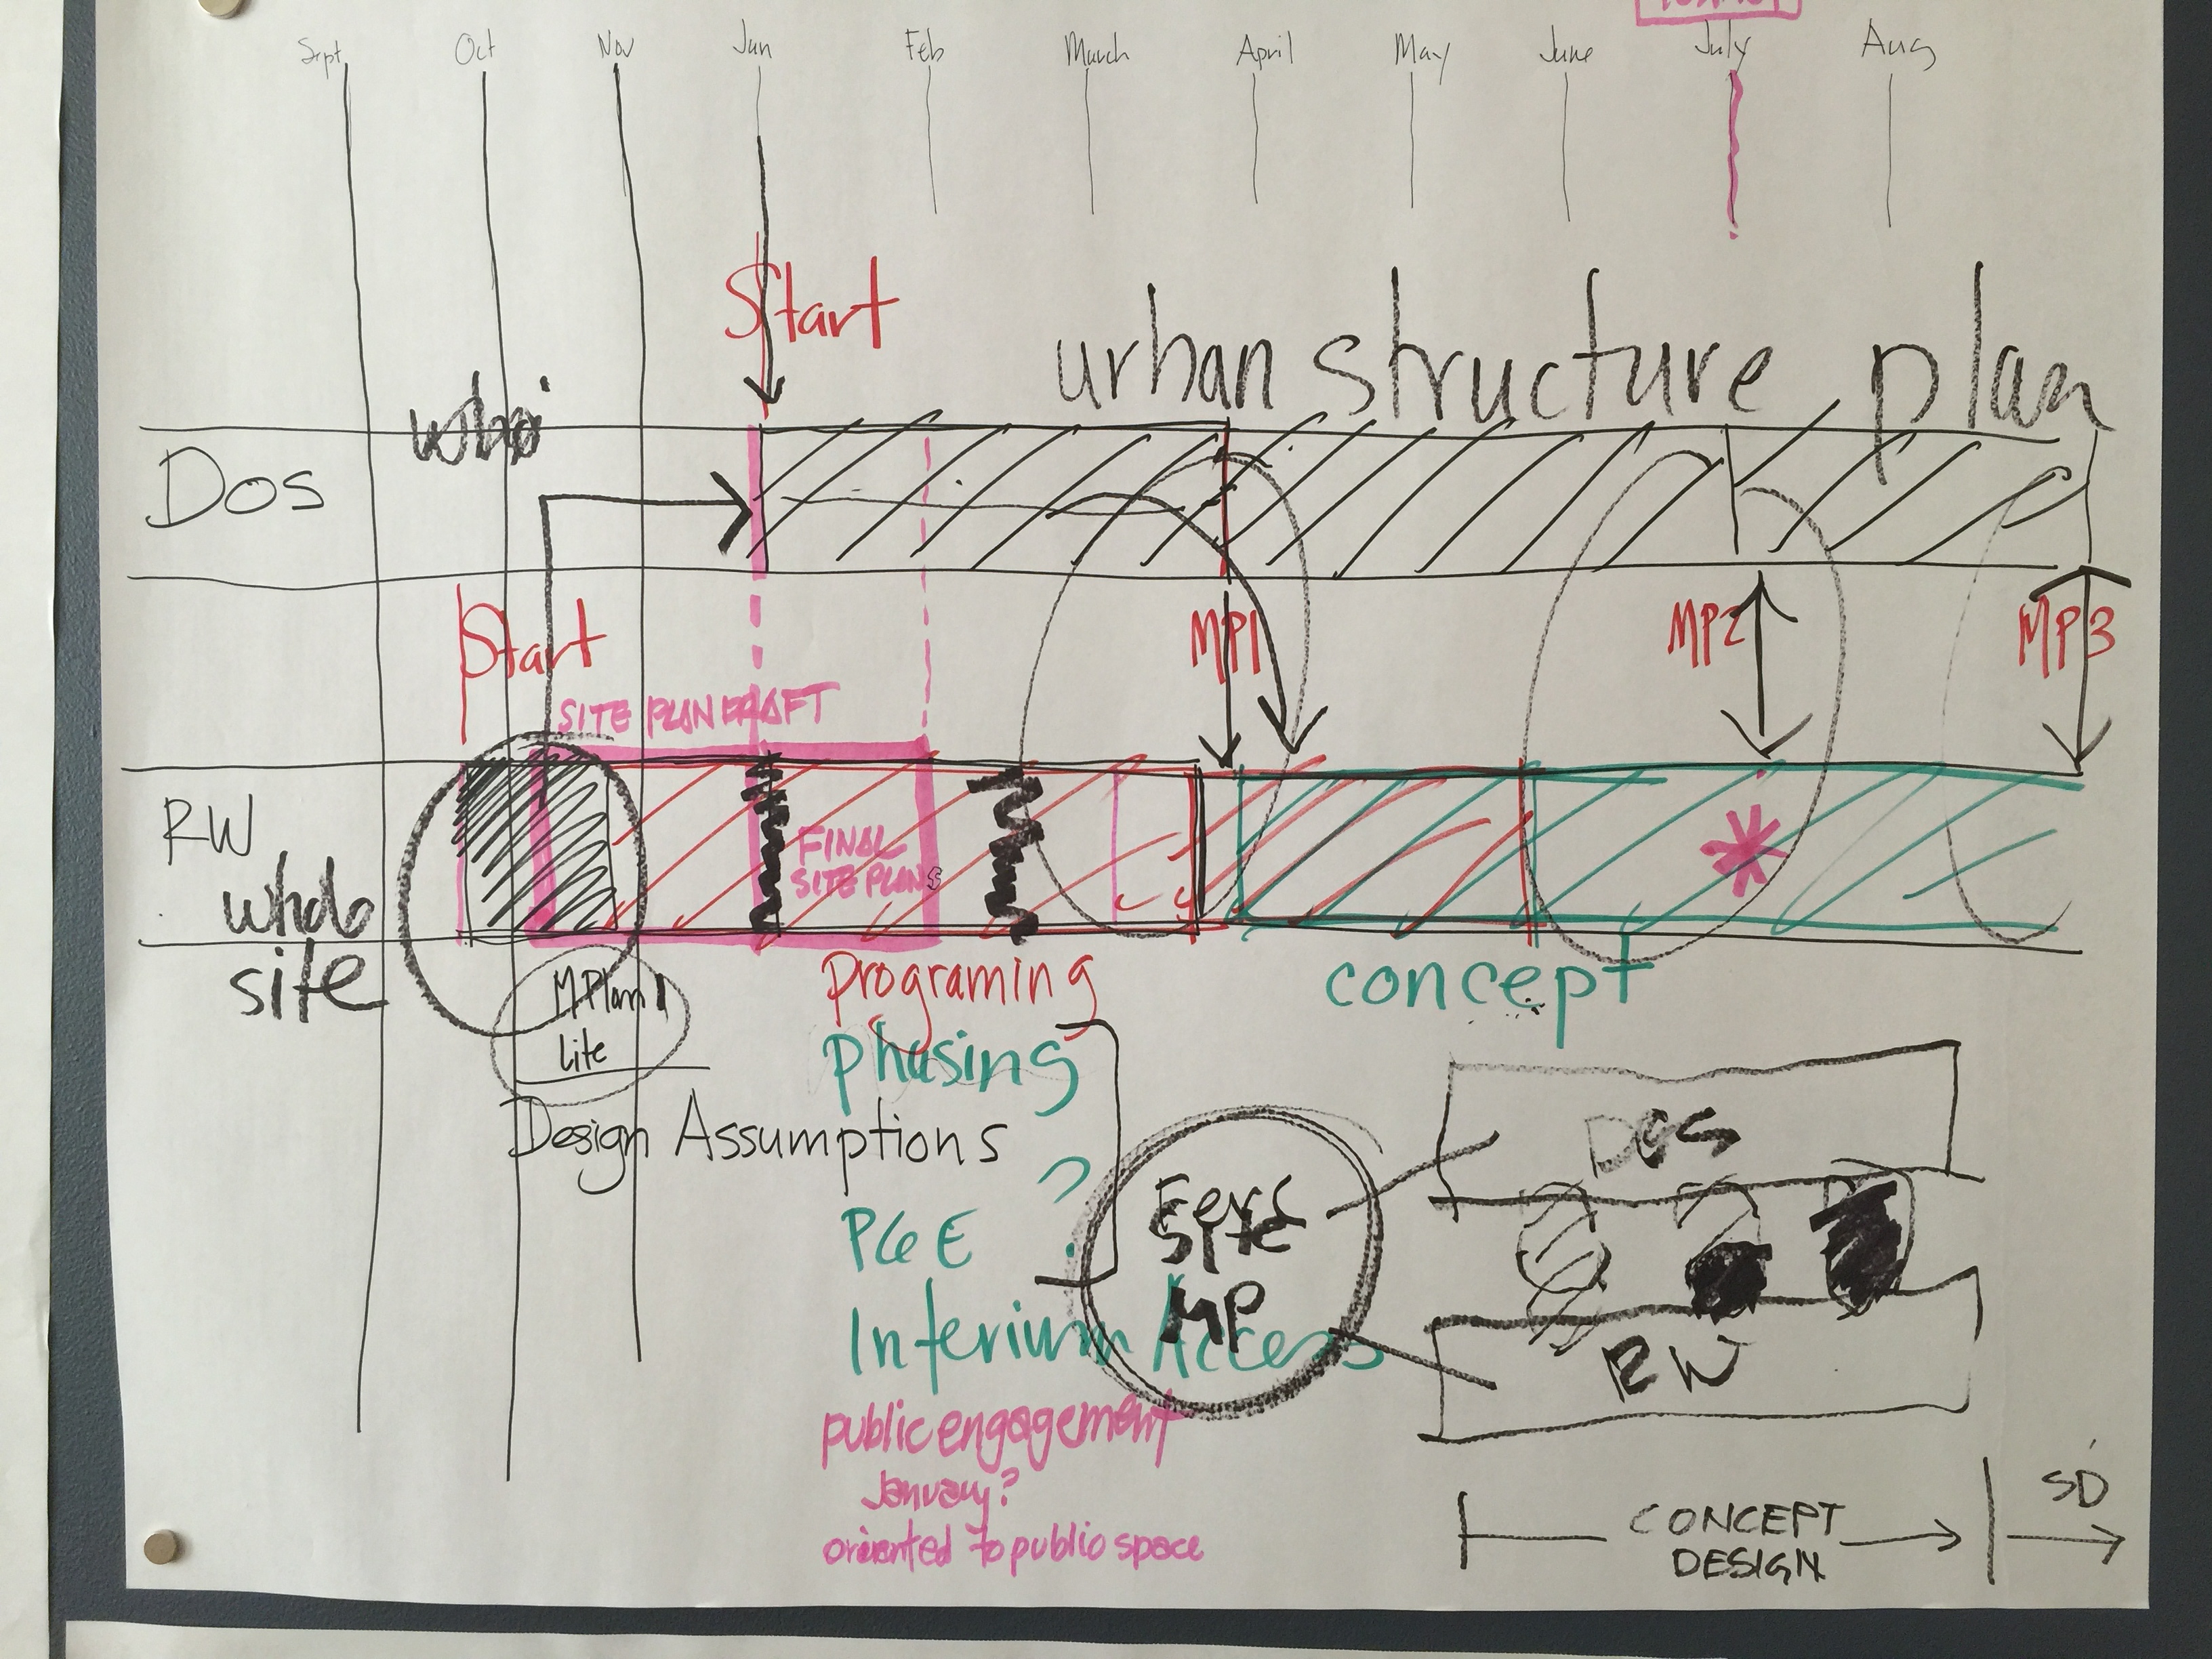 Sept Oct Nov Jan Feb March April May June July Aug
Start
urban structure plan
who
DOS
Start
MP1 MP2 MP3
SITE PLAN DRAFT
RW
FINAL
SITE PLANS
whole
site
MPlan
lite
programing
concept
phasing
Design Assumptions
?
PG&E
Site
MP
Interium Access
DOS
RW
public engagement
January?
oriented to public space
CONCEPT
DESIGN
SD